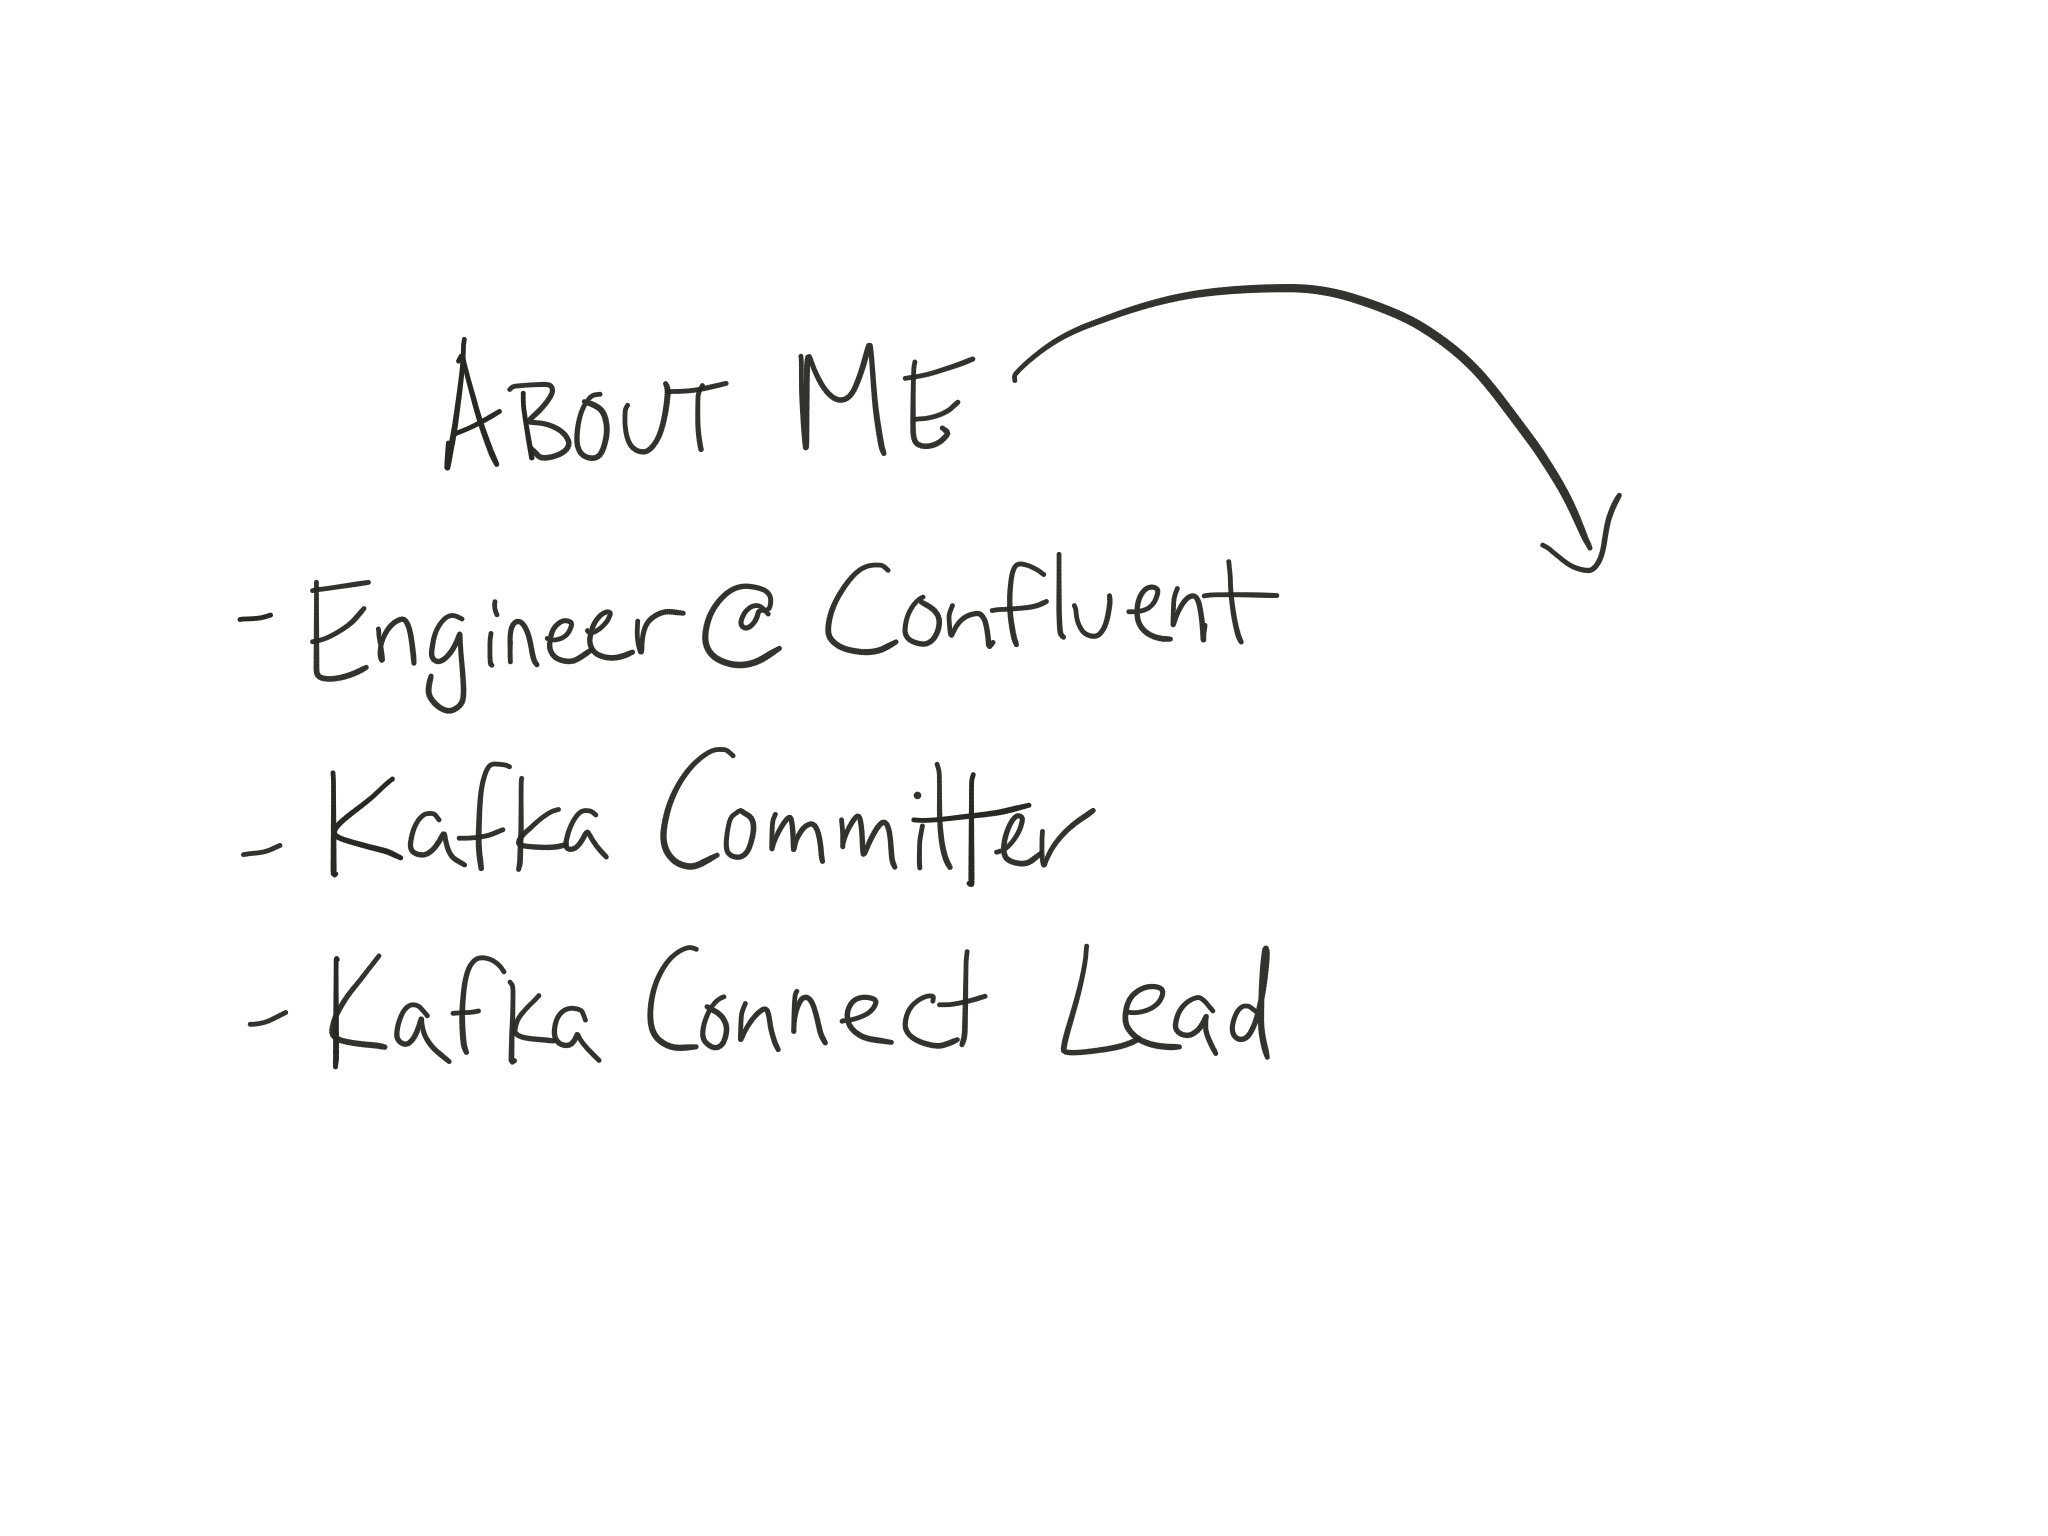 ABOUT ME
- Engineer @ Confluent
- Kafka Committer
- Kafka Connect Lead